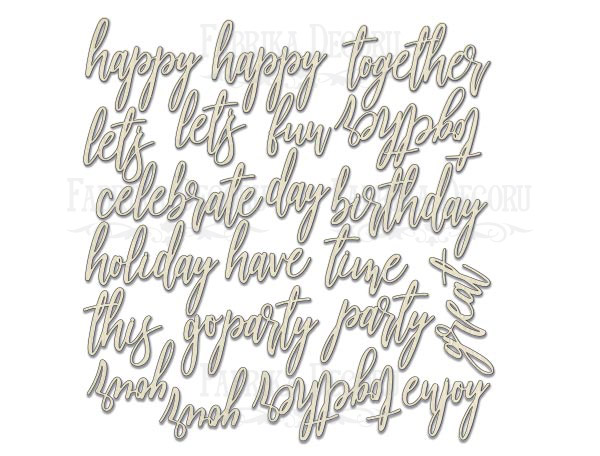 FABRIKA DECORU
happy happy together
let's let's fun together
FABRIKA DECORU FABRIKA DECORU
celebrate day birthday
holiday have time great
this go party party
FABRIKA DECORU
your your together enjoy